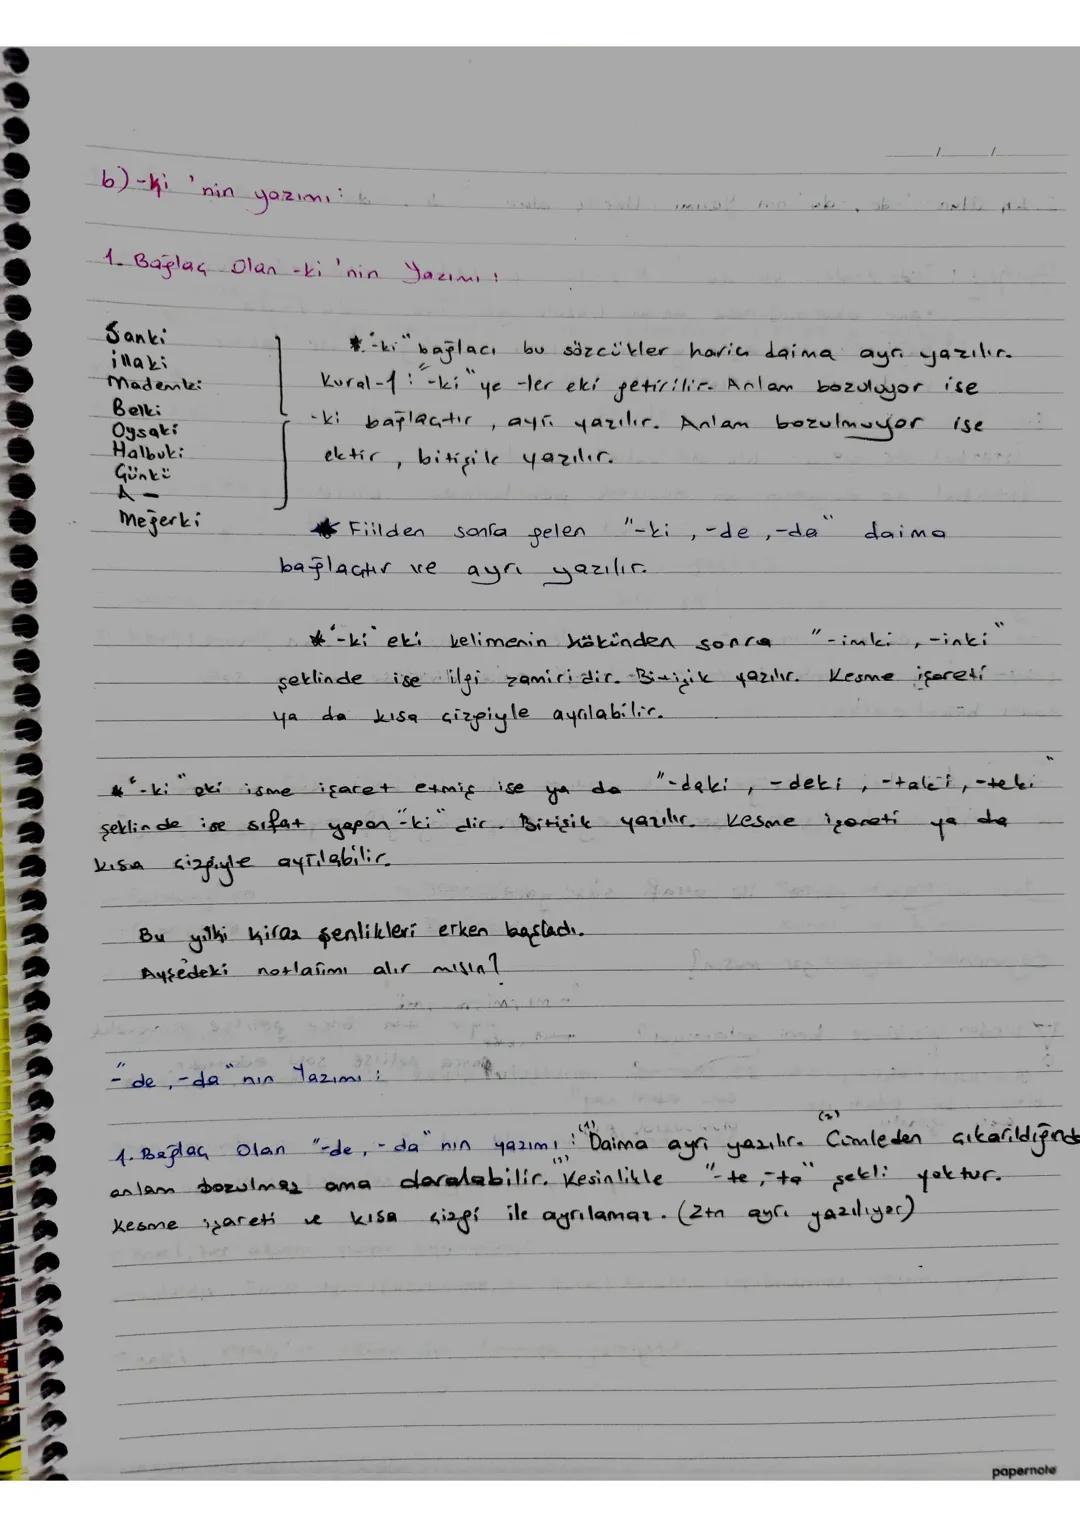 b) -ki 'nin yazımı:
1. Bağlaç Olan -ki 'nin Yazımı:
Sanki
İllaki
Mademki
Belki
Oysaki
Halbuki
Çünkü
A -
Meğerki
* "-ki" bağlacı bu sözcükler hariç daima ayrı yazılır.
Kural-1: "-ki" ye -ler eki getirilir. Anlam bozuluyor ise
-ki bağlaçtır, ayrı yazılır. Anlam bozulmuyor ise
ektir, bitişik yazılır.
* Fiilden sonra gelen "-ki, -de, -da" daima
bağlaçtır ve ayrı yazılır.
* "-ki" eki kelimenin kökünden sonra "-imki, -inki"
şeklinde ise ilgi zamiridir. Bitişik yazılır. Kesme işareti
ya da kısa çizgiyle ayrılabilir.
* "-ki" eki isme işaret etmiş ise ya da "-daki, -deki, -taki, -teki"
şeklinde ise sıfat yapan "-ki" dir. Bitişik yazılır. Kesme işareti ya da
kısa çizgiyle ayrılabilir.
Bu yılki kiraz şenlikleri erken başladı.
Ayşe'deki notlarımı alır mısın?
"-de, -da" nın Yazımı:
1. Bağlaç Olan "-de, -da" nın yazımı: (1) Daima ayrı yazılır. (2) Cümleden çıkarıldığında
anlam bozulmaz ama daralabilir. (3) Kesinlikle "-te, -ta" şekli yoktur.
Kesme işareti ve kısa çizgi ile ayrılamaz. (Ztn ayrı yazılıyor)
papernote